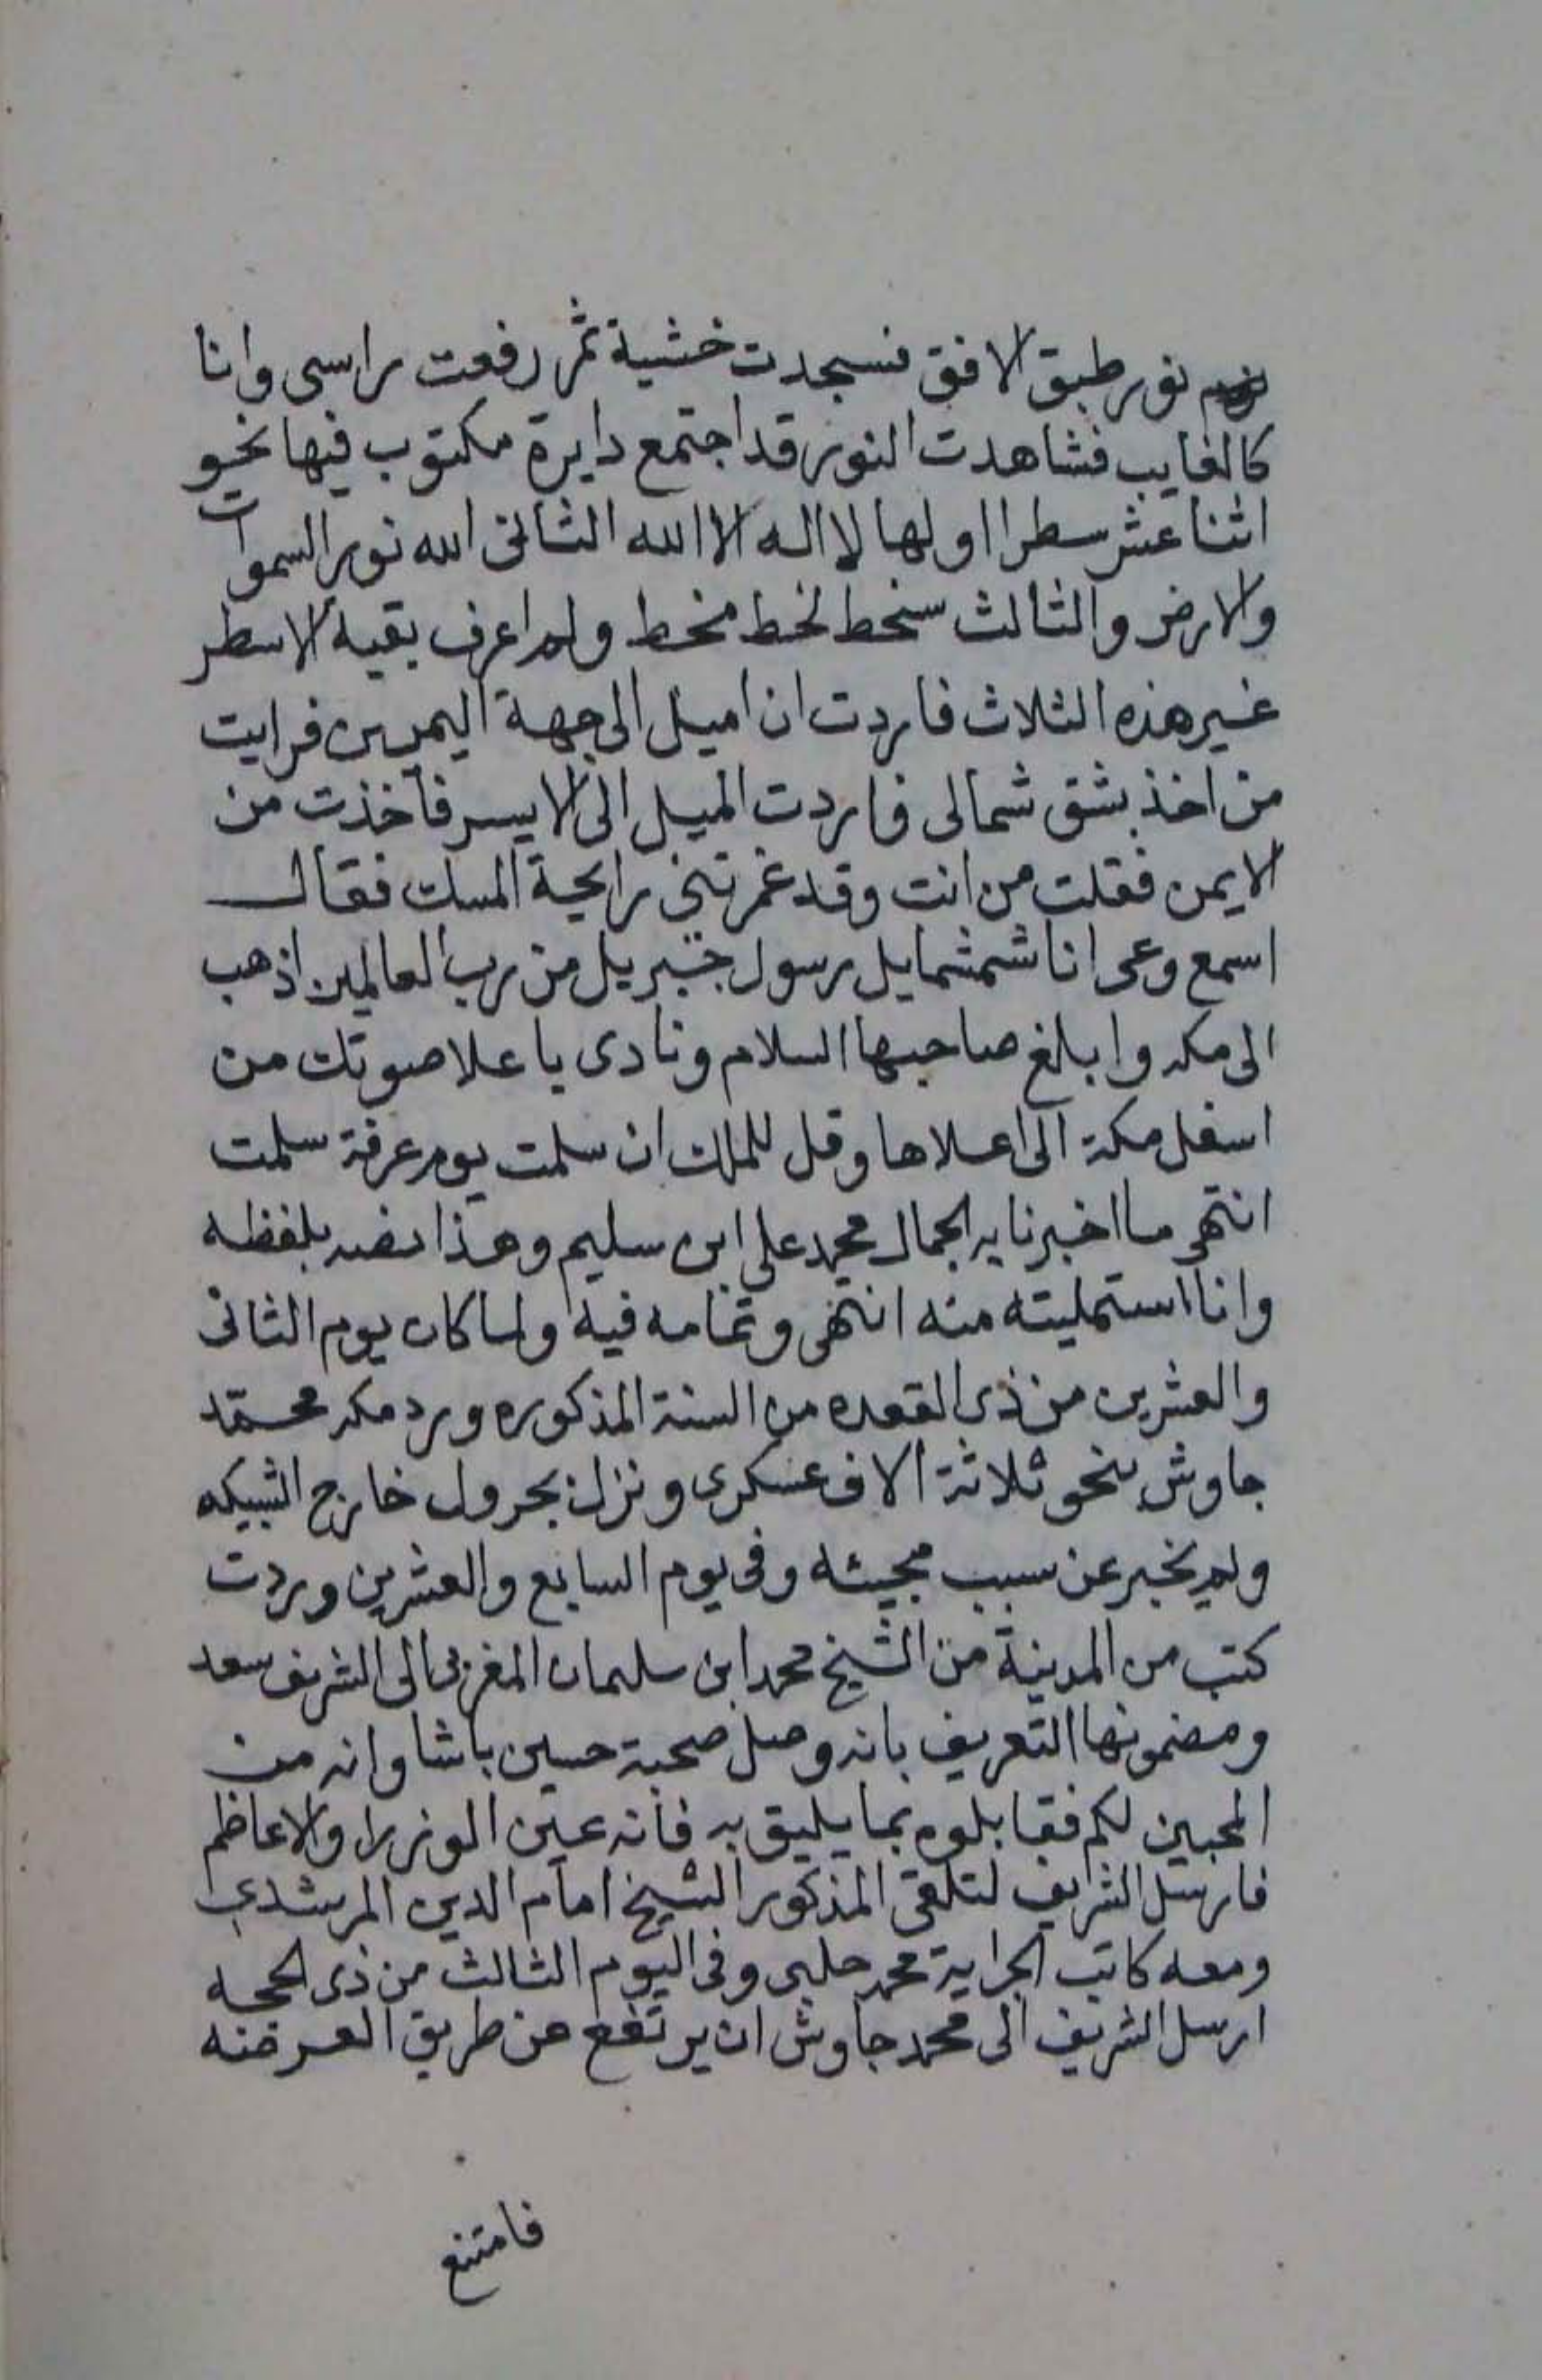 نور طبق الافق فسجدت خشية ثم رفعت راسى وانا
كالغايب فشاهدت النور قد اجتمع دايرة مكتوب فيها نحو
اثنا عشر سطرا اولها لا اله الا الله الثانى الله نور السموات
والارض والثالث سخط لخط مخط ولم اعرف بقية الاسطر
غير هذه الثلاث فاردت ان اميل الى جهة اليمين فرايت
من اخذ بشق شمالى فاردت الميل الى الايسر فاخذت من
الايمن فقلت من انت وقد غمرتنى رايحة المسك فقال
اسمع وعى انا شمشمايل رسول جبريل من رب العالمين اذهب
الى مكه وابلغ صاحبها السلام ونادى باعلا صوتك من
اسفل مكة الى اعلاها وقل للملك ان سلمت يوم عرفة سلمت
انتهى ما اخبرنا به الجمال محمد على ابن سليم وهذا نصه بلفظه
وانا استمليته منه انتهى وتمامه فيه ولما كان يوم الثانى
والعشرين من ذى القعده من السنة المذكوره ورد مكه محمد
جاوش بنحو ثلاثة الاف عسكرى ونزل بجرول خارج الشبيكه
ولم يخبر عن سبب مجيئه وفى يوم السابع والعشرين وردت
كتب من المدينة من الشيخ محمد ابن سليمان المغربى الى الشريف سعد
ومضمونها التعريف بانه وصل صحبة حسين باشا وانه من
المحبين لكم فقابلوه بما يليق به فانه عين الوزرا والاعاظم
فارسل الشريف لتلقى المذكور الشيخ امام الدين المرشدى
ومعه كاتب الجراية محمد جلبى وفى اليوم الثالث من ذى الحجه
ارسل الشريف الى محمد جاوش ان يرتفع عن طريق العرضه
فامتنع